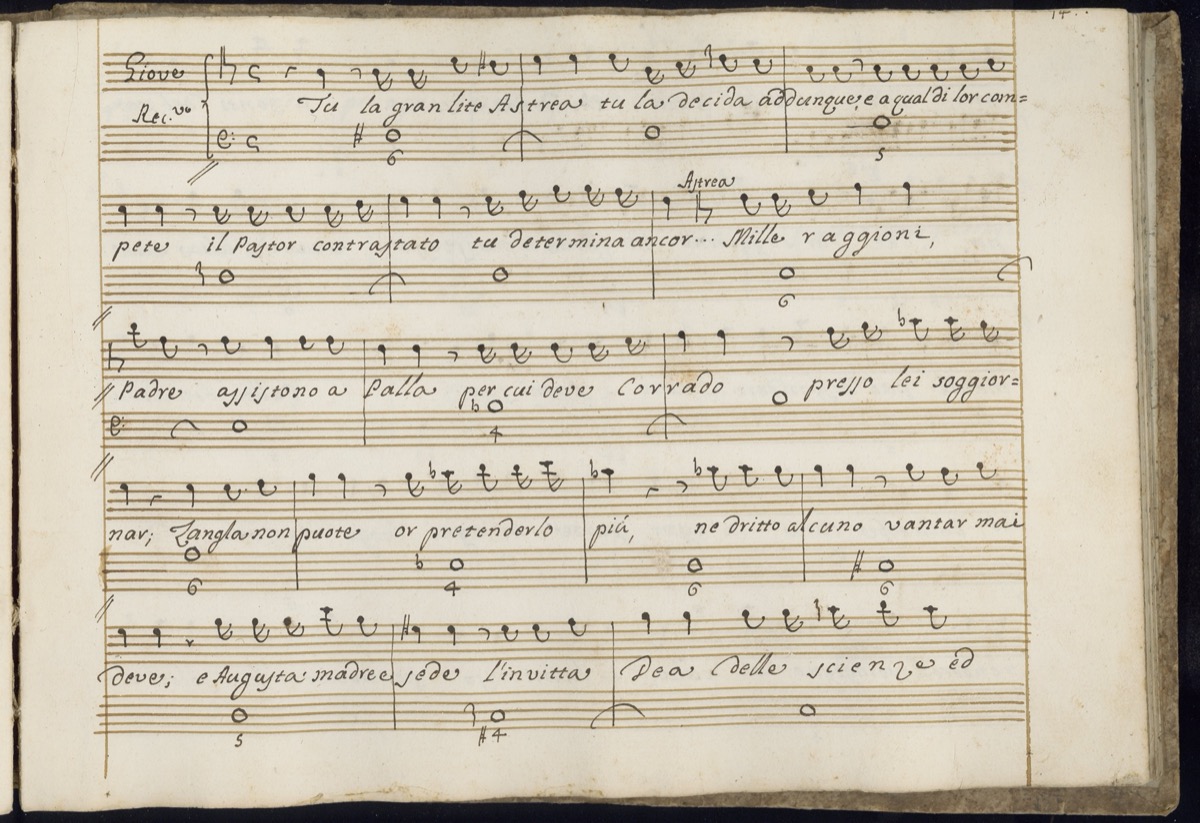 14.
Giove
Rec.vo
Tu la gran lite Astrea tu la decida addunque, e a qual di lor com=
6 5
Astrea
pete il Pastor contrastato tu determina ancor... Mille raggioni,
6
Padre assistono a Palla per cui deve Corrado presso lei soggior=
4
nar; Zangla non puote or pretenderlo più, ne dritto alcuno vantar mai
6 4 6 6
deve; e Augusta madre e sede l'invitta Dea delle scienze ed
5 #4